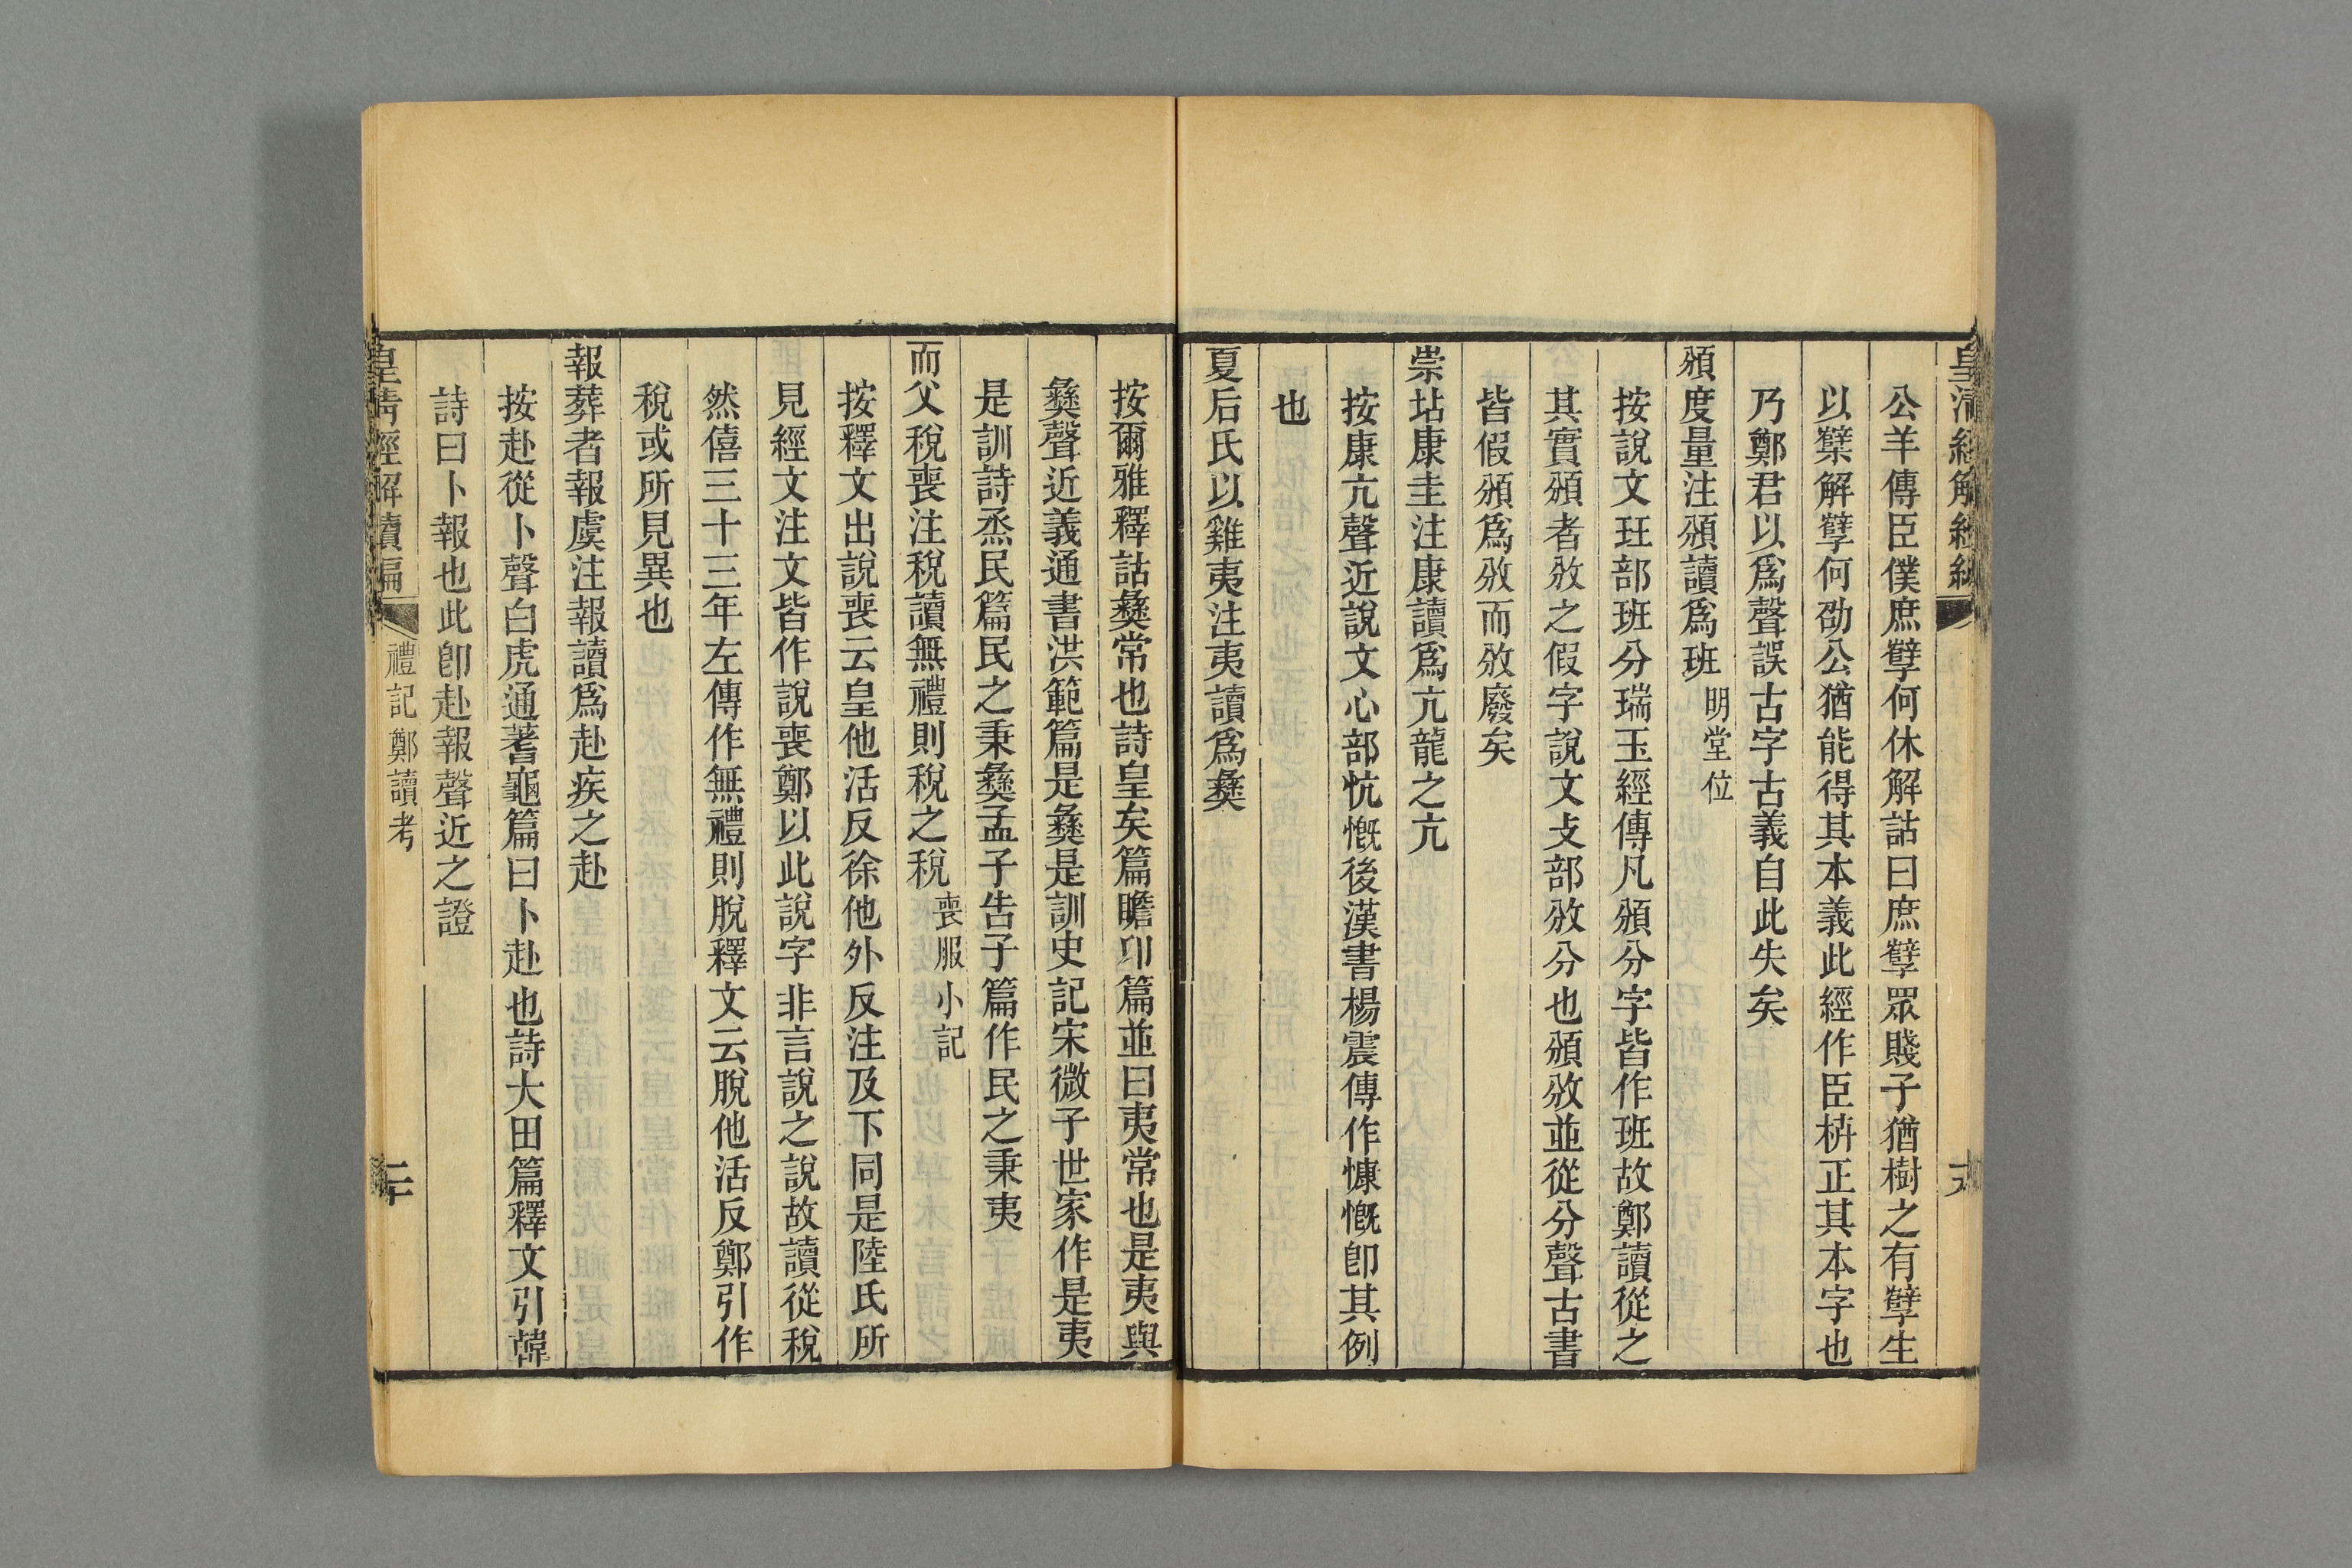 公羊傳臣僕庶孼何休解詁曰庶孼眾賤子猶樹之有孼生
以櫱解孼何劭公猶能得其本義此經作臣枿正其本字也
乃鄭君以爲聲誤古字古義自此失矣
頒度量注頒讀爲班明堂位
按說文玨部班分瑞玉經傳凡頒分字皆作班故鄭讀從之
其實頒者攽之假字說文攴部攽分也頒攽並從分聲古書
皆假頒爲攽而攽廢矣
崇坫康圭注康讀爲亢龍之亢
按康亢聲近說文心部忼慨後漢書楊震傳作慷慨卽其例
也
夏后氏以雞夷注夷讀爲彝
按爾雅釋詁彝常也詩皇矣篇瞻卬篇並曰夷常也是夷與
彝聲近義通書洪範篇是彝是訓史記宋微子世家作是夷
是訓詩烝民篇民之秉彝孟子告子篇作民之秉夷
而父稅喪注稅讀無禮則稅之稅喪服小記
按釋文出說喪云皇他活反徐他外反注及下同是陸氏所
見經文注文皆作說喪鄭以此說字非言說之說故讀從稅
然僖三十三年左傳作無禮則脫釋文云脫他活反鄭引作
稅或所見異也
報葬者報虞注報讀爲赴疾之赴
按赴從卜聲白虎通蓍龜篇曰卜赴也詩大田篇釋文引韓
詩曰卜報也此卽赴報聲近之證
皇清經解續編
禮記鄭讀考
二十